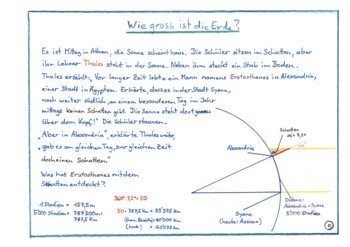 Wie gross ist die Erde?
Es ist Mittag in Athen, die Sonne scheint heiss. Die Schüler sitzen im Schatten, aber
ihr Lehrer Thales steht in der Sonne. Neben ihm steckt ein Stab im Boden.
Thales erzählt: Vor langer Zeit lebte ein Mann namens Eratosthenes in Alexandria,
einer Stadt in Ägypten. Er hörte, dass in der Stadt Syene,
noch weiter südlich, an einem besonderen Tag im Jahr
mittags keinen Schatten gibt. Die Sonne steht dort genau
über dem Kopf!" Die Schüler staunen.
„Aber in Alexandria", erklärte Thales weiter,
„gab es am gleichen Tag, zur gleichen Zeit
doch einen Schatten."
Was hat Eratosthenes mit dem
Schatten entdeckt?
Schatten
α = 7,2°
Alexandria
1 Stadion = 157,5m
5'000 Stadien = 787'500m
787,5 km
360°:7,2°=50
50 · 787,5 km = 39'375 km
= 40'075 km
Syene
(heute: Assuan)
Distanz
Alexandria - Syene
5'000 Stadien